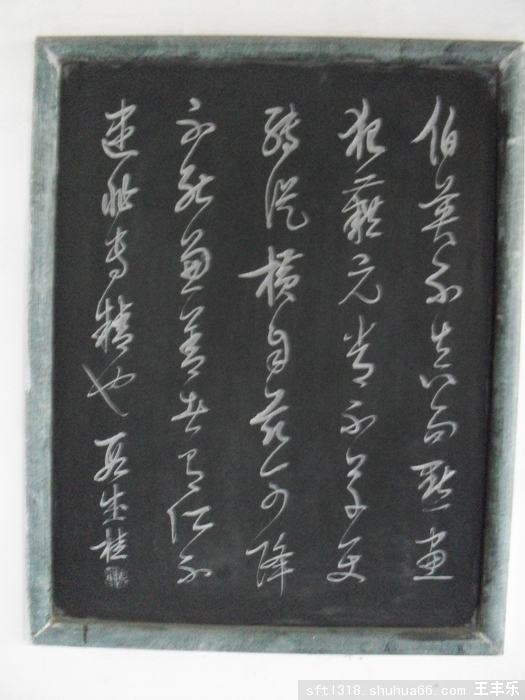 伯英不真而點畫
狼藉元常不草使
轉縱橫自茲已降
不能兼善者有所不
逮非專精也 段成桂
sftl318.shuhua66.com 王丰乐